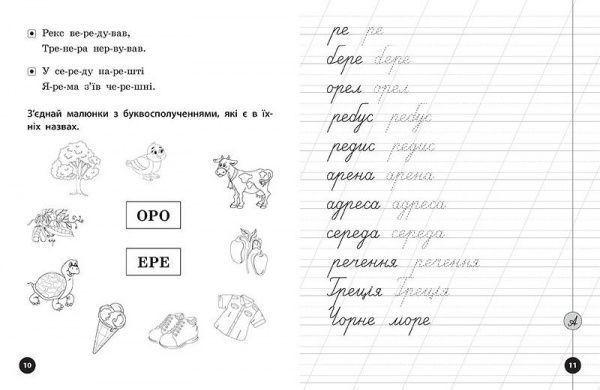 Рекс ве-ре-ду-вав,
Тре-не-ра нер-ву-вав.
У се-ре-ду на-ре-шті
Я-ре-ма з'їв че-ре-шні.
З'єднай малюнки з буквосполученнями, які є в їх-
ніх назвах.
ОРО
ЕРЕ
10
ре ре
бере бере
орел орел
ребус ребус
редис редис
арена арена
адреса адреса
середа середа
речення речення
Греція Греція
Чорне море
А
11